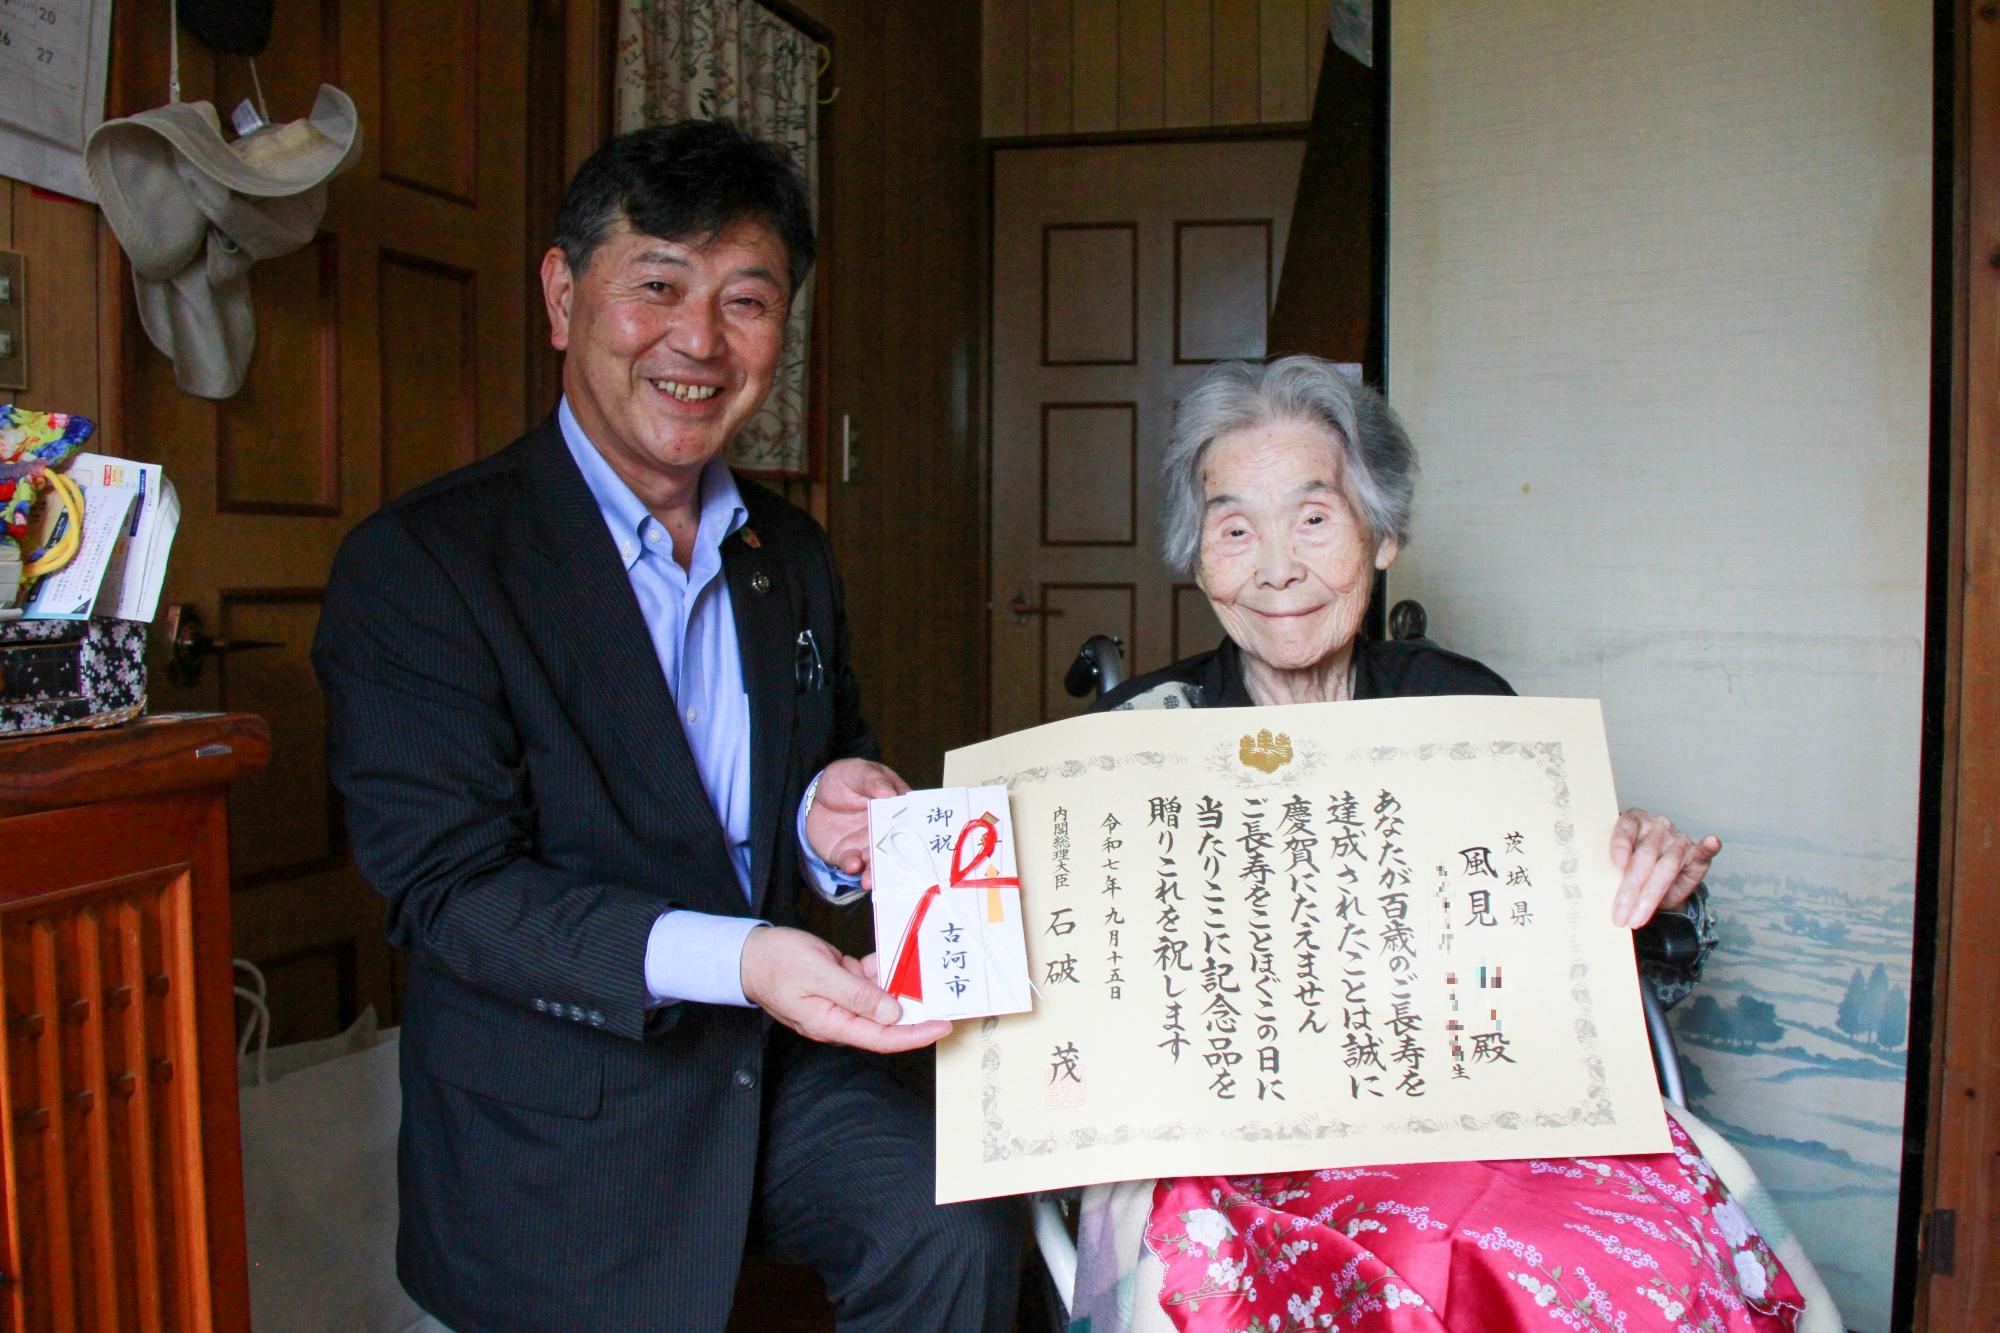 20
26
27
御祝
古河市
茨城県
風見
殿
生
あなたが百歳のご長寿を
達成されたことは誠に
慶賀にたえません
ご長寿をことほぐこの日に
当たりここに記念品を
贈りこれを祝します
令和七年九月十五日
内閣総理大臣 石破 茂